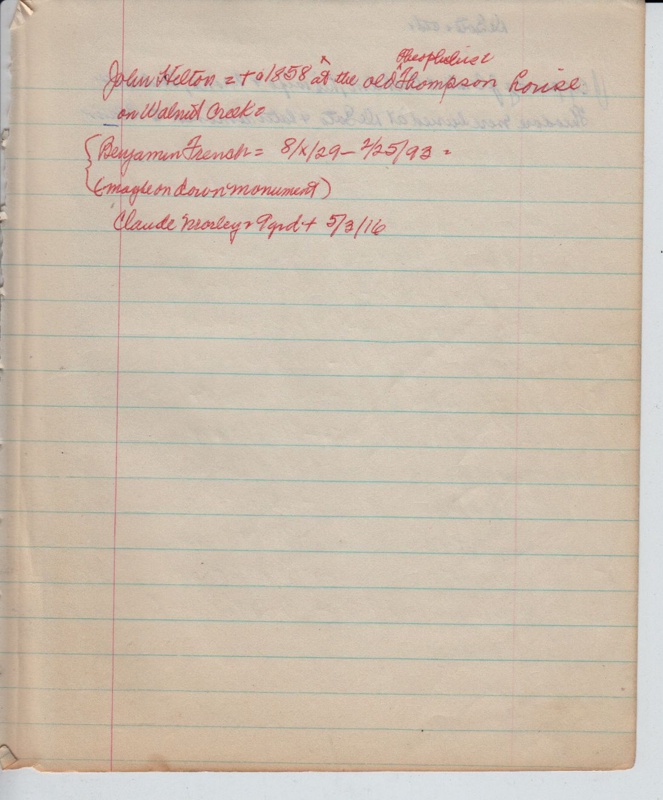 Theophilus
John Helton = + a 1858 ^ at the old ^ Thompson house
on Walnut Creek =
{Benjamin French = 8/x/29 – 2/25/93 =
(maybe on down monument)
Claude Mosley = 9 yrd + 5/3/16